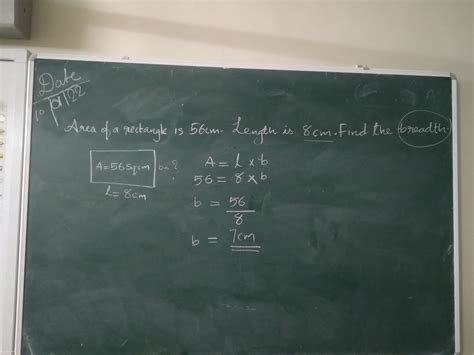 Date
Area of a rectangle is 56cm. Length is 8cm. Find the breadth.
A=56sqcm b=?
L=8cm
A = L × b
56 = 8 × b
b = 56
8
b = 7cm